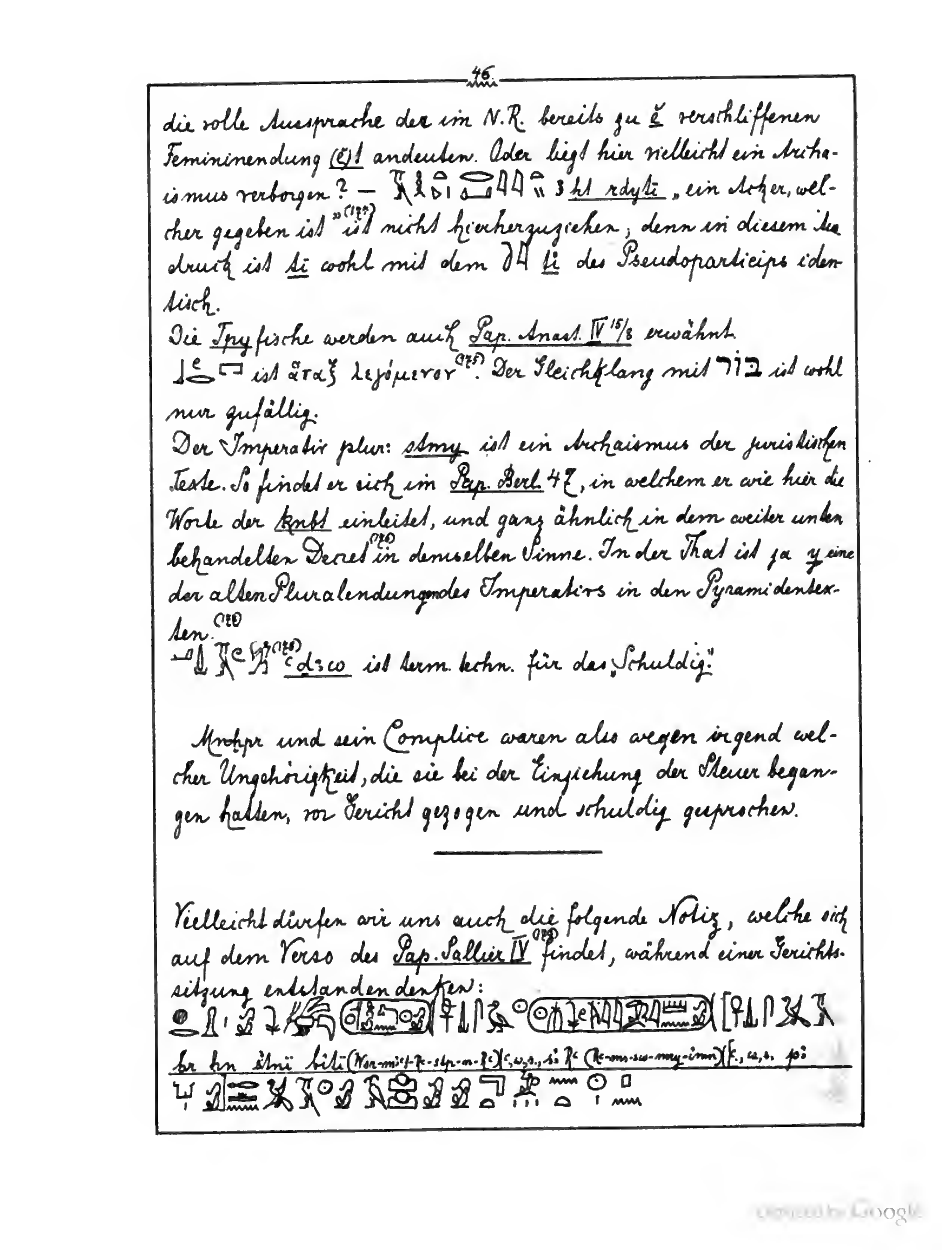 46.
die volle Aussprache der im N.R. bereits zu ĕ verschliffenen
Femininendung (ĕ)t andeuten. Oder liegt hier vielleicht ein Archa-
ismus verborgen? — 3ḥt rdyti „ein Acker, wel-
cher gegeben ist" ist nicht hierherzuziehen, denn in diesem Aus
druck ist ti wohl mit dem ti des Pseudoparticips iden-
tisch.
Die Tpyfische werden auch Pap. Anast. IV 15/8 erwähnt.
ist ἅπαξ λεγόμενον (175). Der Gleichklang mit בּוֹר ist wohl
nur zufällig.
Der Imperativ plur: stmy ist ein Archaismus der juristischen
Texte. So findet er sich im Pap. Berl. 47, in welchem er wie hier die
Worte der knbt einleitet, und ganz ähnlich in dem weiter unten
behandelten Decret (176) in demselben Sinne. In der That ist ja y eine
der alten Pluralendungen des Imperativs in den Pyramidentex-
ten.
ꜥd3w ist term. techn. für das „Schuldig".
Mnḫpr und sein Complice waren also wegen irgend wel-
cher Ungehörigkeit, die sie bei der Einziehung der Steuer began-
gen hatten, vor Gericht gezogen und schuldig gesprochen.
Vielleicht dürfen wir uns auch die folgende Notiz, welche sich
auf dem Verso des Pap. Sallier IV findet, während einer Gerichts-
sitzung entstanden denken: